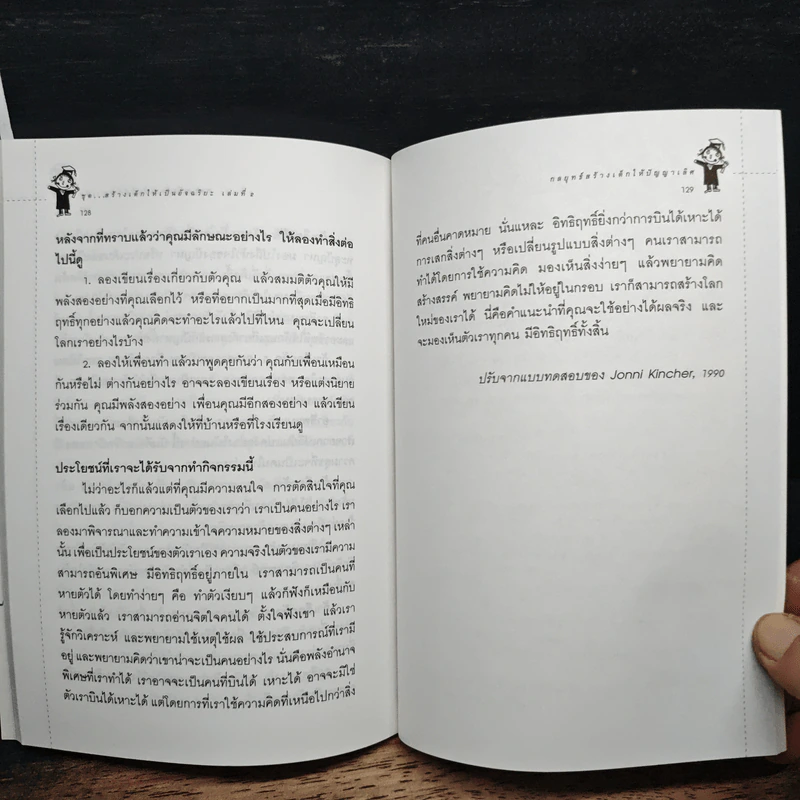 ชุด...สร้างเด็กให้เป็นอัจฉริยะ เล่มที่ 2
128
หลังจากที่ทราบแล้วว่าคุณมีลักษณะอย่างไร ให้ลองทำสิ่งต่อ
ไปนี้ดู
1. ลองเขียนเรื่องเกี่ยวกับตัวคุณ แล้วสมมติตัวคุณให้มี
พลังสองอย่างที่คุณเลือกไว้ หรือที่อยากเป็นมากที่สุดเมื่อมีอิทธิ
ฤทธิ์ทุกอย่างแล้วคุณคิดจะทำอะไรแล้วไปที่ไหน คุณจะเปลี่ยน
โลกเราอย่างไรบ้าง
2. ลองให้เพื่อนทำ แล้วมาพูดคุยกันว่า คุณกับเพื่อนเหมือน
กันหรือไม่ ต่างกันอย่างไร อาจจะลองเขียนเรื่อง หรือแต่งนิยาย
ร่วมกัน คุณมีพลังสองอย่าง เพื่อนคุณมีอีกสองอย่าง แล้วเขียน
เรื่องเดียวกัน จากนั้นแสดงให้ที่บ้านหรือที่โรงเรียนดู
ประโยชน์ที่เราจะได้รับจากทำกิจกรรมนี้
ไม่ว่าอะไรก็แล้วแต่ที่คุณมีความสนใจ การตัดสินใจที่คุณ
เลือกไปแล้ว ก็บอกความเป็นตัวของเราว่า เราเป็นคนอย่างไร เรา
ลองมาพิจารณาและทำความเข้าใจความหมายของสิ่งต่างๆ เหล่า
นั้น เพื่อเป็นประโยชน์ของตัวเราเอง ความจริงในตัวของเรามีความ
สามารถอันพิเศษ มีอิทธิฤทธิ์อยู่ภายใน เราสามารถเป็นคนที่
หายตัวได้ โดยทำง่ายๆ คือ ทำตัวเงียบๆ แล้วก็ฟังก็เหมือนกับ
หายตัวแล้ว เราสามารถอ่านจิตใจคนได้ ตั้งใจฟังเขา แล้วเรา
รู้จักวิเคราะห์ และพยายามใช้เหตุใช้ผล ใช้ประสบการณ์ที่เรามี
อยู่ และพยายามคิดว่าเขาน่าจะเป็นคนอย่างไร นั่นคือพลังอำนาจ
พิเศษที่เราทำได้ เราอาจจะเป็นคนที่บินได้ เหาะได้ อาจจะมิใช่
ตัวเราบินได้เหาะได้ แต่โดยการที่เราใช้ความคิดที่เหนือไปกว่าสิ่ง
กลยุทธ์สร้างเด็กให้ปัญญาเลิศ
129
ที่คนอื่นคาดหมาย นั่นแหละ อิทธิฤทธิ์ยิ่งกว่าการบินได้เหาะได้
การเสกสิ่งต่างๆ หรือเปลี่ยนรูปแบบสิ่งต่างๆ คนเราสามารถ
ทำได้โดยการใช้ความคิด มองเห็นสิ่งง่ายๆ แล้วพยายามคิด
สร้างสรรค์ พยายามคิดไม่ให้อยู่ในกรอบ เราก็สามารถสร้างโลก
ใหม่ของเราได้ นี่คือคำแนะนำที่คุณจะใช้อย่างได้ผลจริง และ
จะมองเห็นตัวเราทุกคน มีอิทธิฤทธิ์ทั้งสิ้น
ปรับจากแบบทดสอบของ Jonni Kincher, 1990